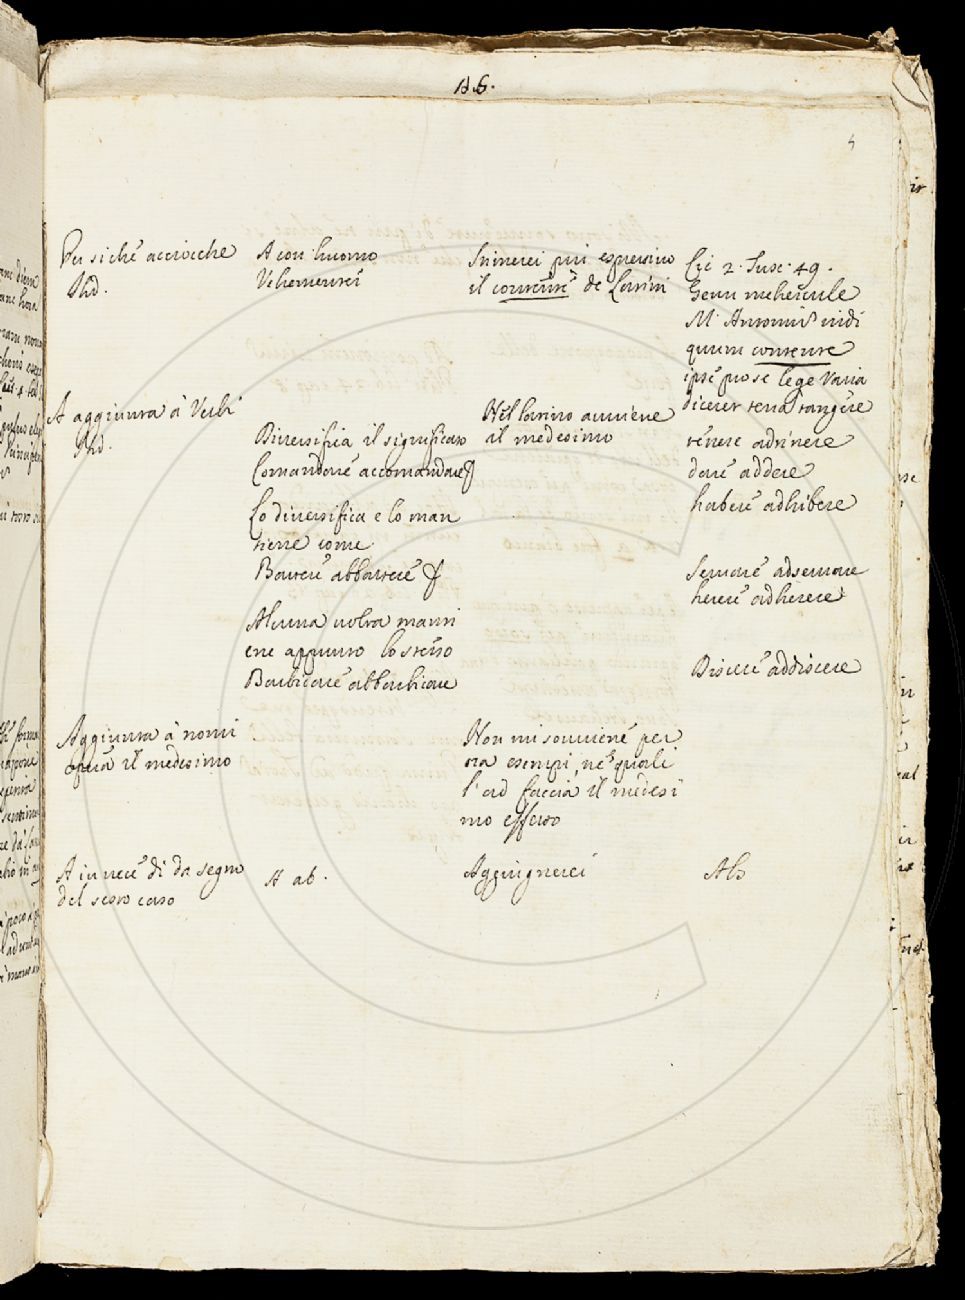 A B.
5
Per si chè acciocche
Ibid.
A con huomo
Vehementei
Stimerei più espressivo
il contentè de Latini
Cic 2. Tusc. 49.
Genu mehercule
M. Antoniũ vidi
quum contente
ipsè pro se lege Varia
diceret terrã tangere
A aggiunta à Verbi
Ibid.
Diversifica il significato
Comandarè accomandare
Lo diversifica e lo man
tiene come
Batterè abbatterè
Alcuna volta manti
ene appunto lo stesso
Barbicarè abbarbicare
Nel latino avviene
il medesimo
tenere adtinere
darè addere
haberè adhibere
Servarè adservare
herere adherere
Discerè addiscere
Aggiunta à nomi
opera il medesimo
Non mi sovvienè per
ora esempi, nè quali
l'ad faccia il medesi
mo effetto
A in vecè di da segno
del sesto caso
A ab.
Aggiugnerei
Ab